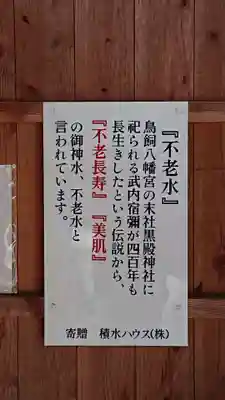 『不老水』
鳥飼八幡宮の末社黒殿神社に
祀られる武内宿彌が四百年も
長生きしたという伝説から、
『不老長寿』『美肌』
の御神水、不老水と
言われています。
寄贈 積水ハウス(株)